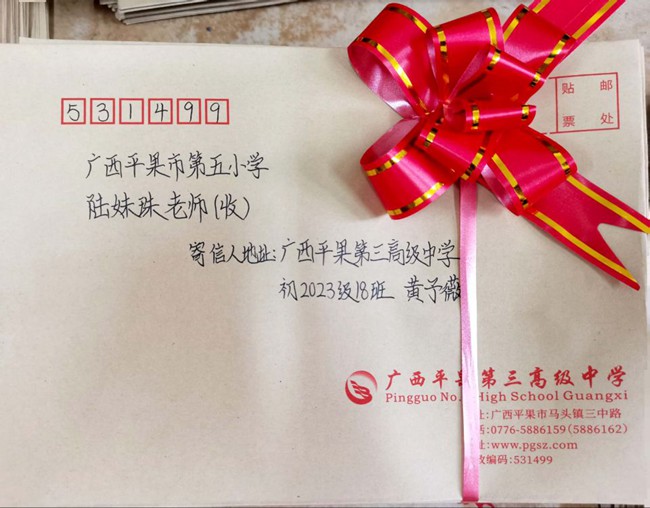 贴 邮
票 处
531499
广西平果市第五小学
陆妹珠老师(收)
寄信人地址:广西平果第三高级中学
初2023级18班 黄予薇
广西平果第三高级中学
Pingguo No. High School Guangxi
址:广西平果市马头镇三中路
话:0776-5886159(5886162)
址:www.pgsz.com
政编码:531499